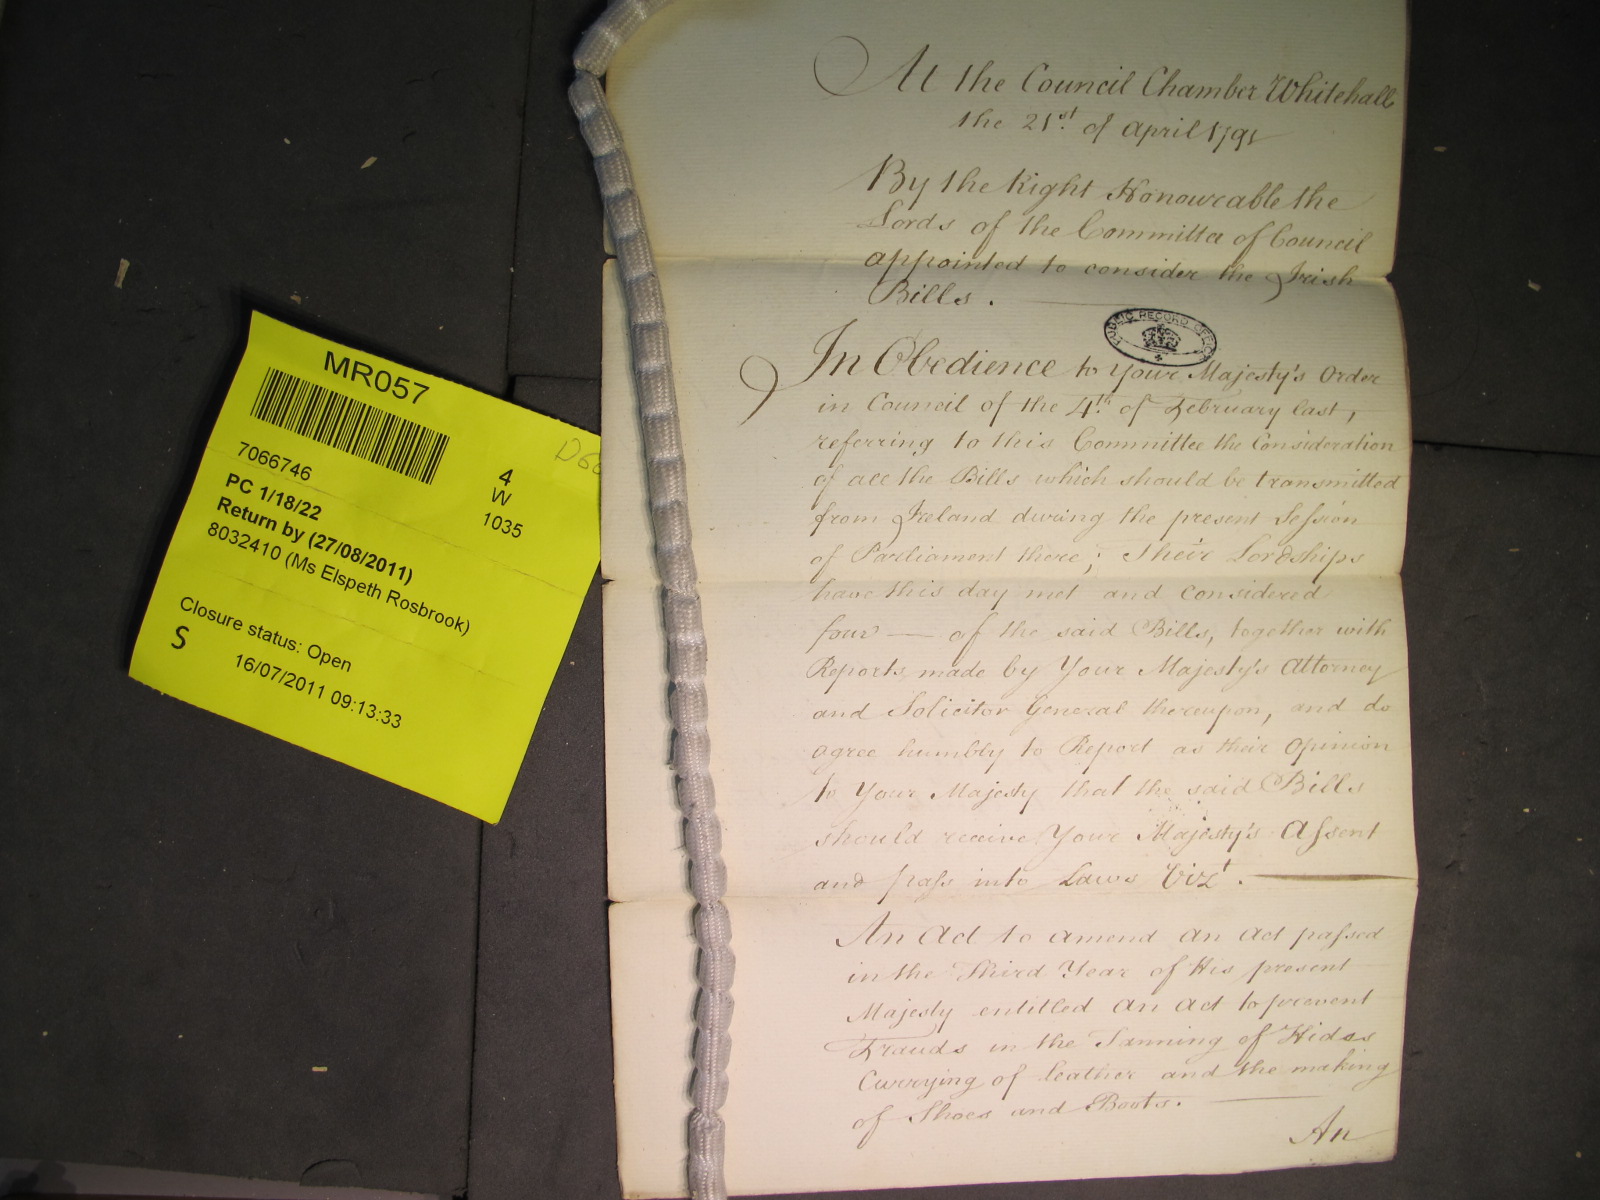 MR057
7066746
4
W
1035
PC 1/18/22
Return by (27/08/2011)
8032410 (Ms Elspeth Rosbrook)
Closure status: Open
S
16/07/2011 09:13:33
At the Council Chamber Whitehall
the 21st. of April 1791
By the Right Honourable the
Lords of the Committee of Council
appointed to consider the Irish
Bills.
PUBLIC RECORD OFFICE
In Obedience to Your Majesty's Order
in Council of the 4th. of February last,
referring to this Committee the Consideration
of all the Bills which should be transmitted
from Ireland during the present Session
of Parliament there; Their Lordships
have this day met and considered
four — of the said Bills, together with
Reports made by Your Majesty's Attorney
and Solicitor General thereupon, and do
agree humbly to Report as their Opinion
to Your Majesty that the said Bills
should receive Your Majesty's Assent
and pass into Laws Vizt.
An Act to amend an Act passed
in the Third Year of His present
Majesty entitled An Act to prevent
Frauds in the Tanning of Hides
Currying of leather and the making
of Shoes and Boots.
An